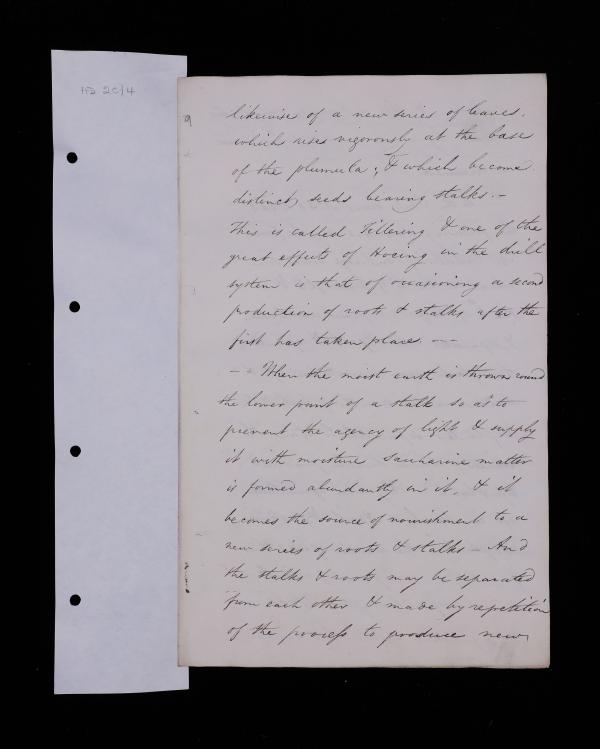 HD 2C/4
9
likewise of a new series of leaves.
which rises vigorously at the base
of the plumula; & which become
distinct, seeds bearing stalks. –
This is called Tillering & one of the
great effects of Hoeing in the drill
system is that of occasioning a second
production of roots & stalks after the
first has taken place. – –
– When the moist earth is thrown round
the lower point of a stalk so as to
prevent the agency of light & supply
it with moisture saccharine matter
is formed abundantly in it, & it
becomes the source of nourishment to a
new series of roots & stalks – And
the stalks & roots may be separated
from each other & made by repetition
of the process to produce new